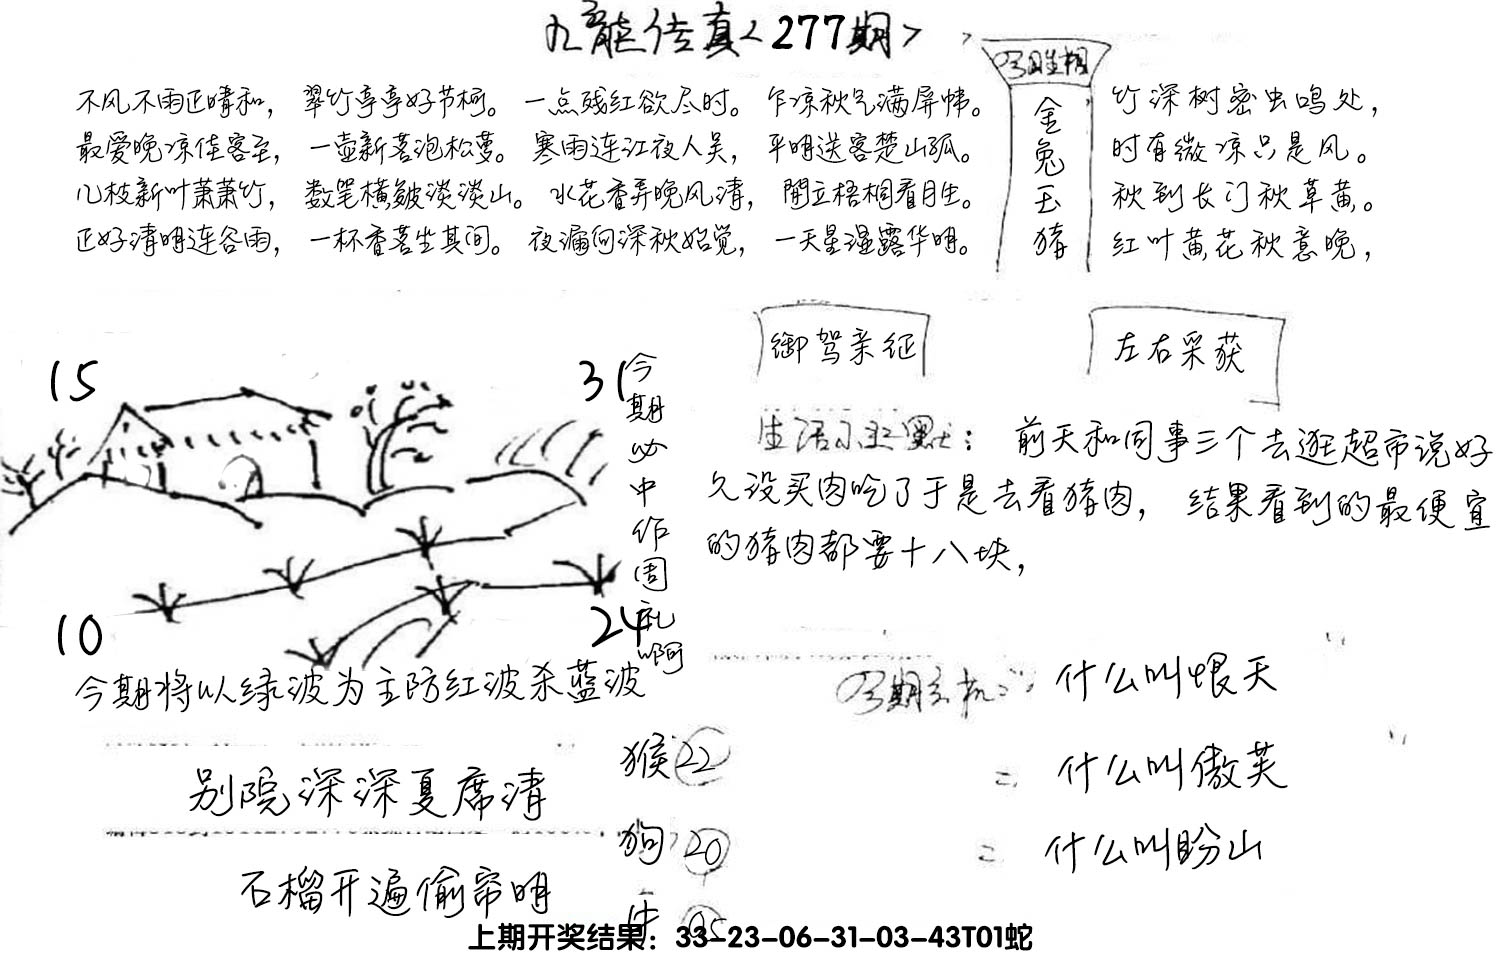 九龍传真<277期>
今期生相
金兔玉猪
不风不雨正晴和，翠竹亭亭好节柯。一点残红欲尽时。乍凉秋气满屏帏。
最爱晚凉佳客至，一壶新茗泡松萝。寒雨连江夜人吴，平明送客楚山孤。
几枝新叶萧萧竹，数笔横皴淡淡山。水花香弄晚风清，閒立梧桐看月生。
正好清明连谷雨，一杯香茗坐其间。夜漏向深秋始觉，一天星湿露华明。
竹深树密虫鸣处，
时有微凉只是风。
秋到长门秋草黄。
红叶黄花秋意晚，
15
31
10
24
今期必中作周礼啊
今期将以绿波为主防红波杀蓝波
御驾亲征
左右采获
生活小幽默：前天和同事三个去逛超市说好
久没买肉吃了于是去看猪肉，结果看到的最便宜
的猪肉都要十八块，
今期玄机：什么叫恨天
什么叫傲芙
什么叫盼山
别院深深夏席清
石榴开遍偷帘明
猴22
狗20
牛05
上期开奖结果：33-23-06-31-03-43T01蛇